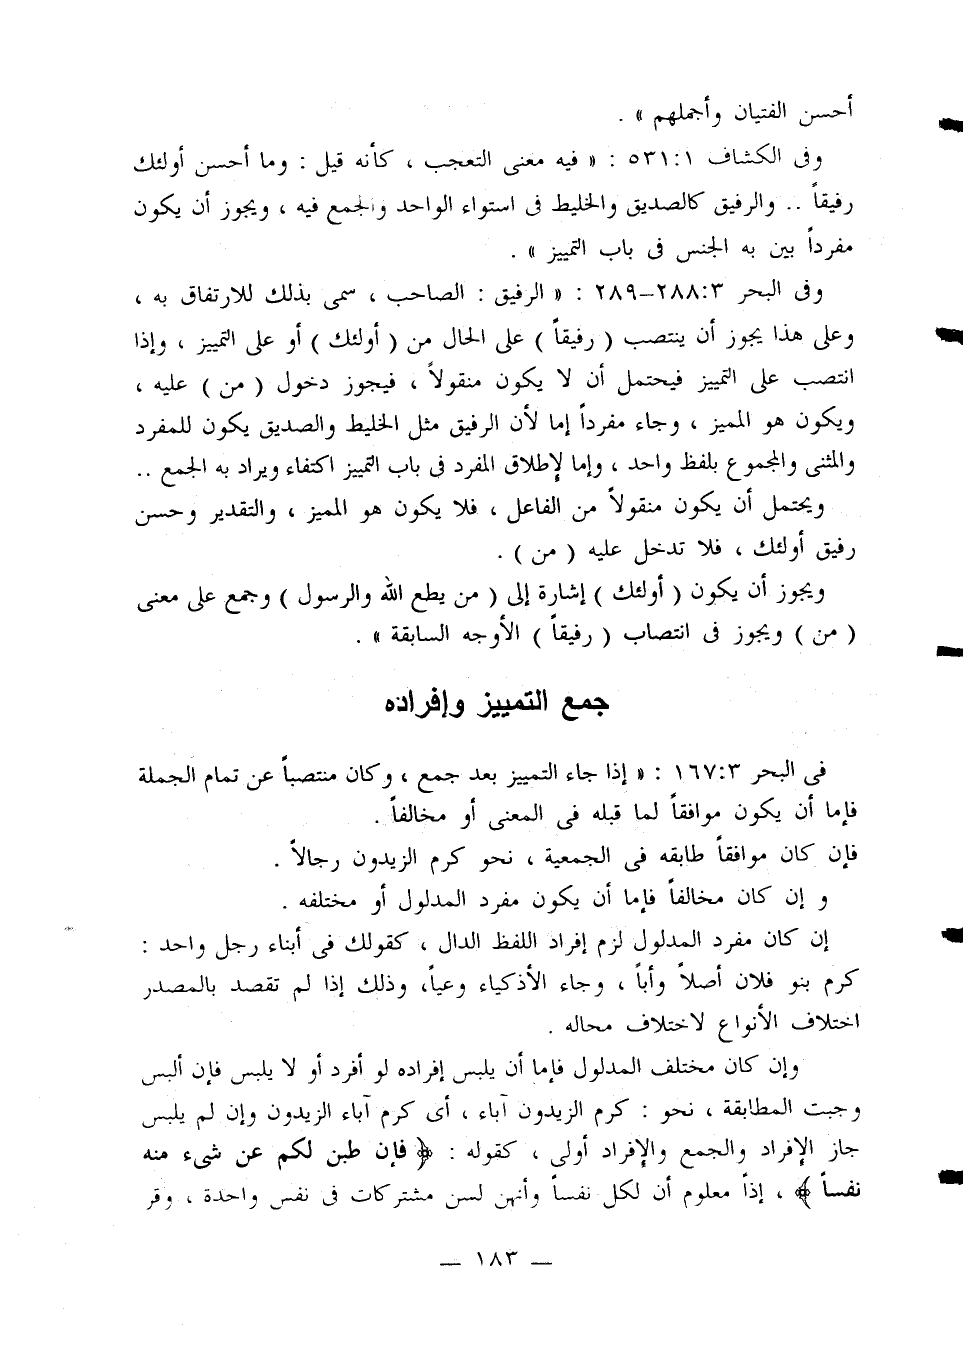 أحسن الفتيان وأجملهم » .
وفى الكشاف ٥٣١:١ : « فيه معنى التعجب ، كأنه قيل : وما أحسن أولئك
رفيقاً .. والرفيق كالصديق والخليط فى استواء الواحد والجمع فيه ، ويجوز أن يكون
مفرداً بين به الجنس فى باب التمييز » .
وفى البحر ٢٨٨:٣–٢٨٩ : « الرفيق : الصاحب ، سمى بذلك للارتفاق به ،
وعلى هذا يجوز أن ينتصب ( رفيقاً ) على الحال من ( أولئك ) أو على التمييز ، وإذا
انتصب على التمييز فيحتمل أن لا يكون منقولاً ، فيجوز دخول ( من ) عليه ،
ويكون هو المميز ، وجاء مفرداً إما لأن الرفيق مثل الخليط والصديق يكون للمفرد
والمثنى والمجموع بلفظ واحد ، وإما لإطلاق المفرد فى باب التمييز اكتفاء ويراد به الجمع ..
ويحتمل أن يكون منقولاً من الفاعل ، فلا يكون هو المميز ، والتقدير وحسن
رفيق أولئك ، فلا تدخل عليه ( من ) .
ويجوز أن يكون ( أولئك ) إشارة إلى ( من يطع الله والرسول ) وجمع على معنى
( من ) ويجوز فى انتصاب ( رفيقاً ) الأوجه السابقة » .
جمع التمييز وإفراده
فى البحر ١٦٧:٣ : « إذا جاء التمييز بعد جمع ، وكان منتصباً عن تمام الجملة
فإما أن يكون موافقاً لما قبله فى المعنى أو مخالفاً .
فإن كان موافقاً طابقه فى الجمعية ، نحو كرم الزيدون رجالاً .
و إن كان مخالفاً فإما أن يكون مفرد المدلول أو مختلفه .
إن كان مفرد المدلول لزم إفراد اللفظ الدال ، كقولك فى أبناء رجل واحد :
كرم بنو فلان أصلاً وأباً ، وجاء الأذكياء وعياً، وذلك إذا لم تقصد بالمصدر
اختلاف الأنواع لاختلاف محاله .
وإن كان مختلف المدلول فإما أن يلبس إفراده لو أفرد أو لا يلبس فإن ألبس
وجبت المطابقة ، نحو : كرم الزيدون آباء ، أى كرم آباء الزيدون وإن لم يلبس
جاز الإفراد والجمع والإفراد أولى ، كقوله : ﴿ فإن طبن لكم عن شىء منه
نفساً ﴾ ، إذاً معلوم أن لكل نفساً وأنهن لسن مشتركات فى نفس واحدة ، وقر
— ١٨٣ —